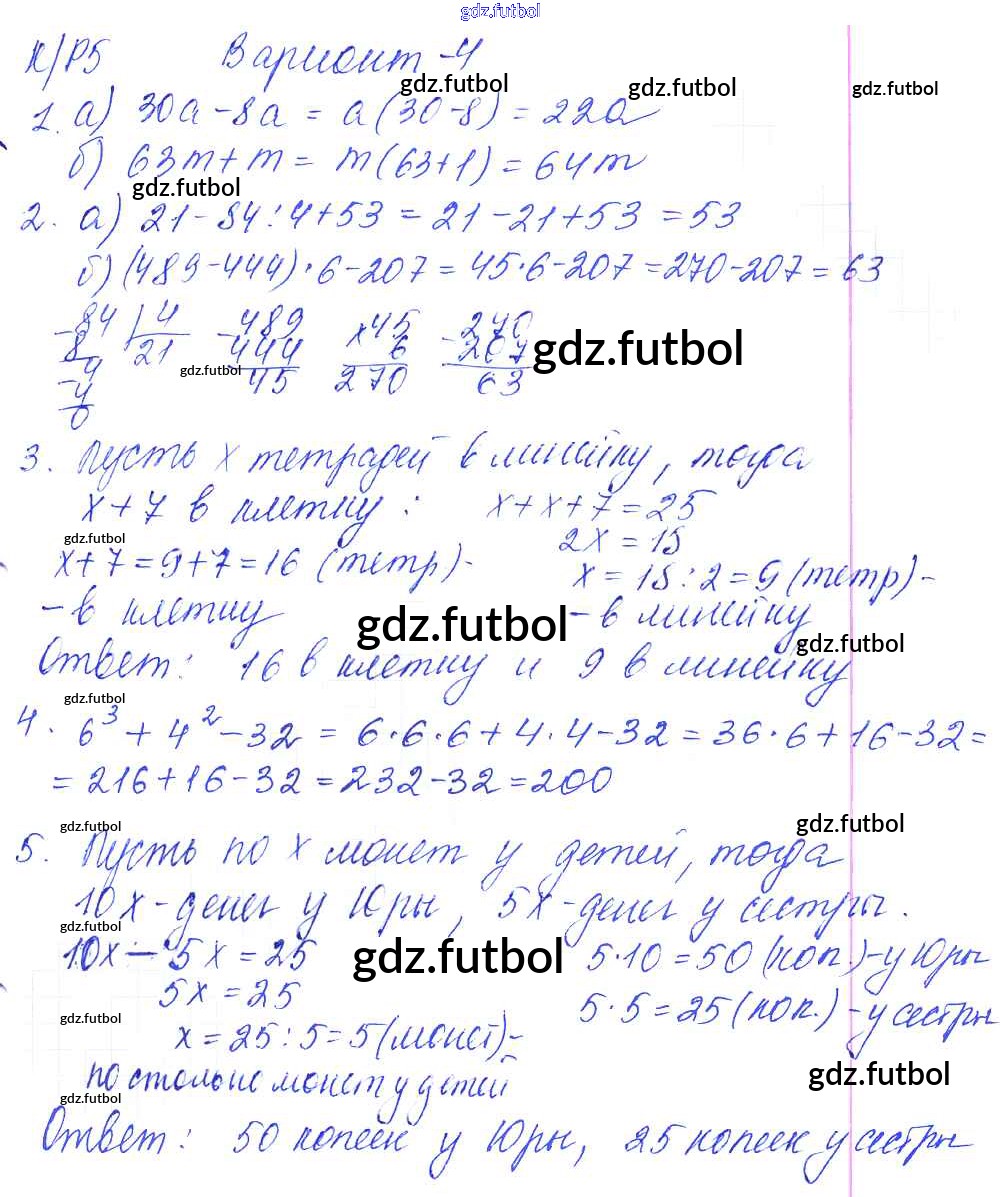 gdz.futbol
К/Р5 Вариант-4
gdz.futbol gdz.futbol gdz.futbol
1. а) 30a - 8a = a(30-8) = 22a
б) 63m + m = m(63+1) = 64m
gdz.futbol
2. а) 21 - 84 : 4 + 53 = 21 - 21 + 53 = 53
б) (489 - 444) · 6 - 207 = 45 · 6 - 207 = 270 - 207 = 63
- 84 | 4 - 489 × 45 - 270
8 21 444 6 207 gdz.futbol
4 gdz.futbol 45 270 63
- 4
0
3. Пусть x тетрадей в линейку, тогда
x + 7 в клетку : x + x + 7 = 25
gdz.futbol 2x = 18
x + 7 = 9 + 7 = 16 (тетр) - x = 18 : 2 = 9 (тетр) -
- в клетку - в линейку
gdz.futbol gdz.futbol
Ответ: 16 в клетку и 9 в линейку
gdz.futbol
4. 6³ + 4² - 32 = 6 · 6 · 6 + 4 · 4 - 32 = 36 · 6 + 16 - 32 =
= 216 + 16 - 32 = 232 - 32 = 200
gdz.futbol gdz.futbol
5. Пусть по x монет у детей, тогда
10x - денег у Юры, 5x - денег у сестры.
gdz.futbol
10x - 5x = 25 gdz.futbol 5 · 10 = 50 (коп.) - у Юры
5x = 25 5 · 5 = 25 (коп.) - у сестры
gdz.futbol
x = 25 : 5 = 5 (монет) -
gdz.futbol
по стольно монет у детей
gdz.futbol
Ответ: 50 копеек у Юры, 25 копеек у сестры